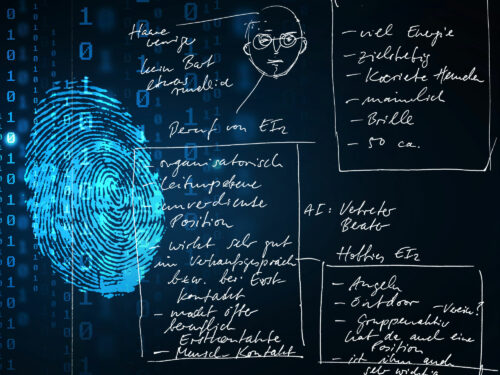 Haare
wenige
kein Bart
etwas
rundlich
- viel Energie
- zielstrebig
- Karierte Hemden
- männlich
- Brille
- 50 ca.
Beruf von EI2
- organisatorisch
- Leitungsebene
- unverdiente
Position
- wirkt sehr gut
im Verkaufsgespräch
bzw. bei Erst-
Kontakt
- macht öfter
beruflich
Erstkontakte
- Mensch Kontakt
AI: Vetreter
Berater
Hobbies EI2
- Angeln
- Outdoor - Verein?
- Gruppenaktiv
hat da auch eine
Position
- ist ihm auch
sehr wichtig